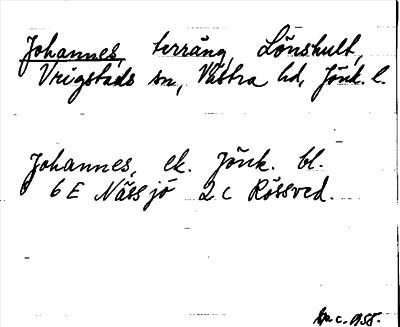 Johannes, terräng, Lönshult,
Vrigstads sn, Västra hd, Jönk. l.
Johannes, ek. Jönk. bl.
6 E Nässjö 2 c Rössved.
c. 1958.